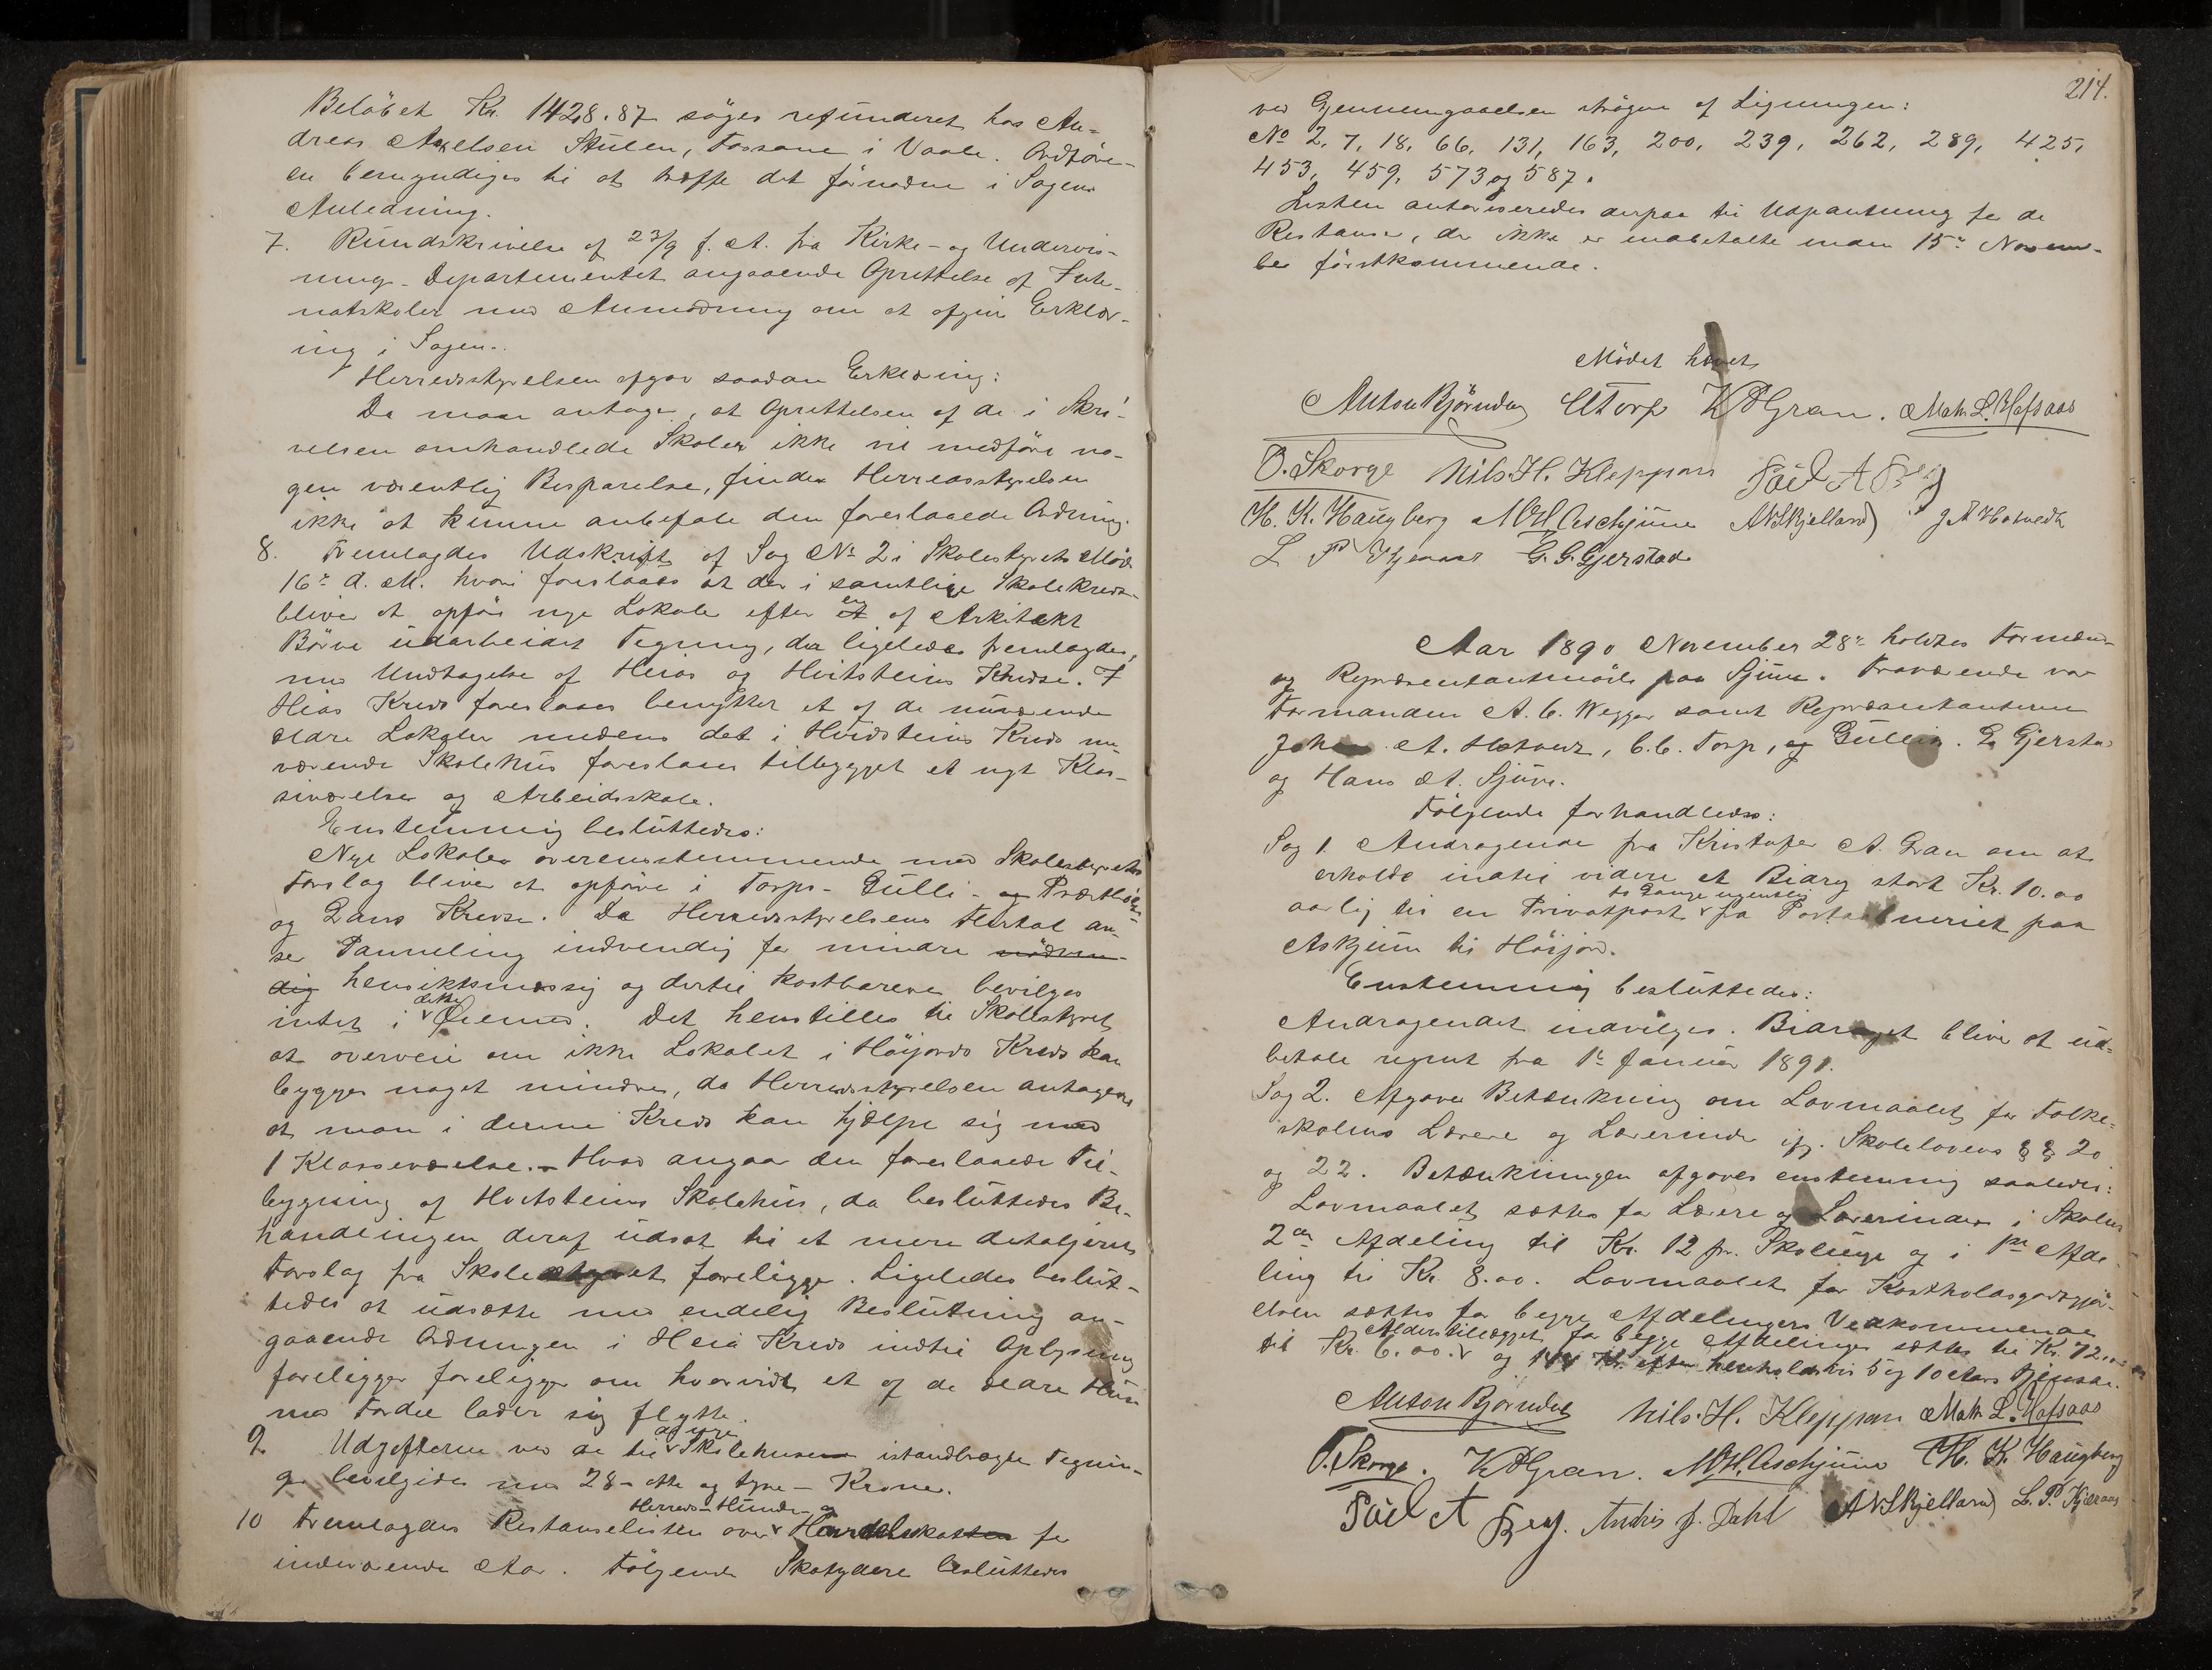 Beløbet Kr. 1428.87 søges refunderet hos An-
dreas Axelsen Stulen, Fossane i Vaale. Ordføre-
en bemyndiges til at træffe det fornødne i Sagens
Anledning.
7. Rundskrivelse af 23/9 f. A. fra Kirke- og Undervis-
nings-Departementet angaaende Oprettelse af Inter-
natskoler med Anmodning om at afgive Erklær-
ing i Sagen.
Herredsstyrelsen afgav saadan Erklæring:
Da man antager, at Oprettelsen af de i Skri-
velsen omhandlede Skoler ikke vil medføre no-
gen væsentlig Besparelse, finder Herredsstyrelsen
ikke at kunne anbefale den foreslaaede Ordning.
8. Fremlagdes Udskrift af Sag No 2 i Skolestyrets Møde
16de d. M. hvori foreslaaes at der i samtlige Skolekredse
bliver at opføre nye Lokaler efter en af Arkitekt
Børve udarbeidet Tegning, der ligeledes fremlagdes,
med Undtagelse af Heias og Hvitsteins Kredse. I
Heias Kreds foreslaaes benyttet et af de nuværende
ældre Lokaler medens det i Hvidsteins Kreds nu
værende Skolehus foreslaaes tilbygget et nyt Klas-
seværelse og Arbeidsskole.
Enstemmig besluttedes:
Nye Lokaler overensstemmende med Skolestyrets
Forslag bliver at opføre i Torps- Gulli-
og Dans Kredse. Da Herredsstyrelsens Flertal an-
ser Panneling indvendig for mindre nødven-
dig hensiktsmæssig og dertil kostbarere bevilges
intet i dette Øiemed. Det henstilles til Skolestyret
at overveie om ikke Lokalet i Høijords Kreds kan
bygges noget mindre, da Herredsstyrelsen antager
at man i denne Kreds kan hjælpe sig med
1 Klasseværelse. - Hvad angaar den foreslaaede Til-
bygning af Hvitsteins Skolehus, da besluttedes Be-
handlingen deraf udsat til et mere detaljeret
Forslag fra Skolestyret foreligger. Ligeledes beslut-
tedes at udsætte med endelig Beslutning an-
gaaende Ordningen i Heia Kreds indtil Oplysning
foreligger foreligger om hvorvidt et af de ældre Huse
med Fordel lader sig flytte.
9. Udgifterne ved de til de nye Skolehuse istandbragte Tegnin-
ger bevilgedes med 28 - otte og tyve - Kroner.
10 Fremlagdes Restanselisten over Herreds- Hunde- og for
indeværende Aar. Følgende Skatydere besluttedes
214.
ved Gjennemgaaelsen strøgne af Ligningen:
No 2, 7, 18, 66, 131, 163, 200, 239, 262, 289, 425,
453, 459, 573 og 587.
Listen autoriseredes derpaa til Udpantning for de
Restanser, der ikke er indbetalte inden 15de Novem-
ber førstkommende.
Mødet hævet
Anton Bjørndal CTorp KAGran. Math. L. Hafsaas
O. Skorge Nils. H. Kleppan Paul A Bry
H. K. Haugberg MHAschjum ANSkjelland J A Hotvedt
L P Kjeraas G. G. Gjerstad
Aar 1890 November 28de holdtes Formænd-
og Repræsentantmøde paa Sjuve. Fraværende var
Formanden A. C. Wegger samt Repræsentanterne
Johan A. Hotvedt, C. C. Torp, og Gullik G. Gjerstad
og Hans A. Sjuve.
Følgende forhandledes:
Sag 1. Andragende fra Kristofer A. Dan om at
erholde indtil videre et Bidrag stort Kr. 10.00
aarlig til en Privatpost to Gange ugentlig fra Postaabneriet paa
Askjum til Høijord.
Enstemmig besluttedes:
Andragendet indvilges. Bidraget bliver at ud-
betale regnet fra 1ste Januar 1891.
Sag 2. Afgaves Betænkning om Lønmaalet for Folke-
skolens Lærere og Lærerinder jfr. Skolelovens §§ 20
og 22. Betænkningen afgaves enstemmig saaledes:
Lønmaalet sættes for Lærere og Lærerinder i Skolens
2den Afdeling til Kr. 12 pr. Skoleuge og i 1ste Afde-
ling til Kr. 8.00. Lønmaalet for Kostholdsgodtgjør-
elsen sættes for begge Afdelingers Vedkommende
til Kr. 6.00. og Alderstillægget for begge Afdelinger sættes til Kr. 72.00
og 144 Kr. efter henholdsvis 5 og 10 Aars Tjeneste.
Anton Bjørndal Nils. H. Kleppan Math. L. Hafsaas
O. Skorge. KAGran. MHAschjum H. K. Haugberg
Paul A Bry. Andris J. Dahl ANSkjelland L. P. Kjeraas